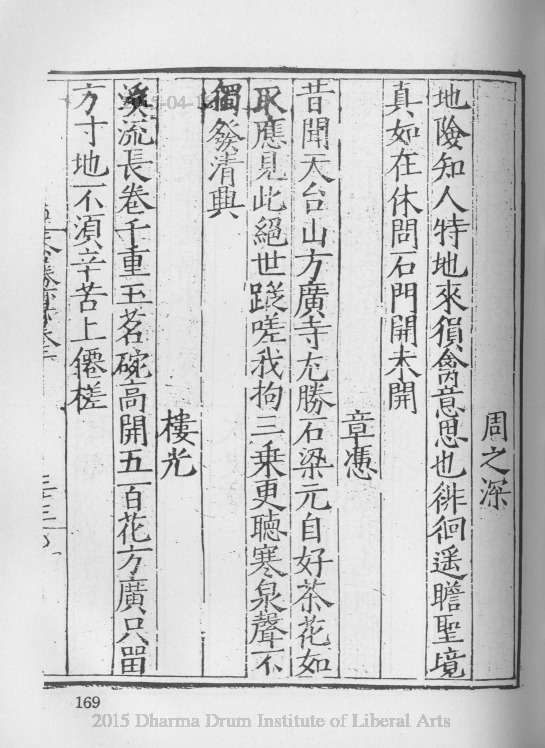 周之深
地險知人特地來猨禽意思也徘徊遥瞻聖境
真如在休問石門開未開
章憑
昔聞天台山方廣寺尤勝石梁元自好茶花如
取應見此絕世蹤嗟我拘三乗更聽寒泉聲不
獨發清典
樓光
流長卷千重玉茗碗高開五百花方廣只畱
方寸地不湏辛苦上僊槎
169
2015 Dharma Drum Institute of Liberal Arts